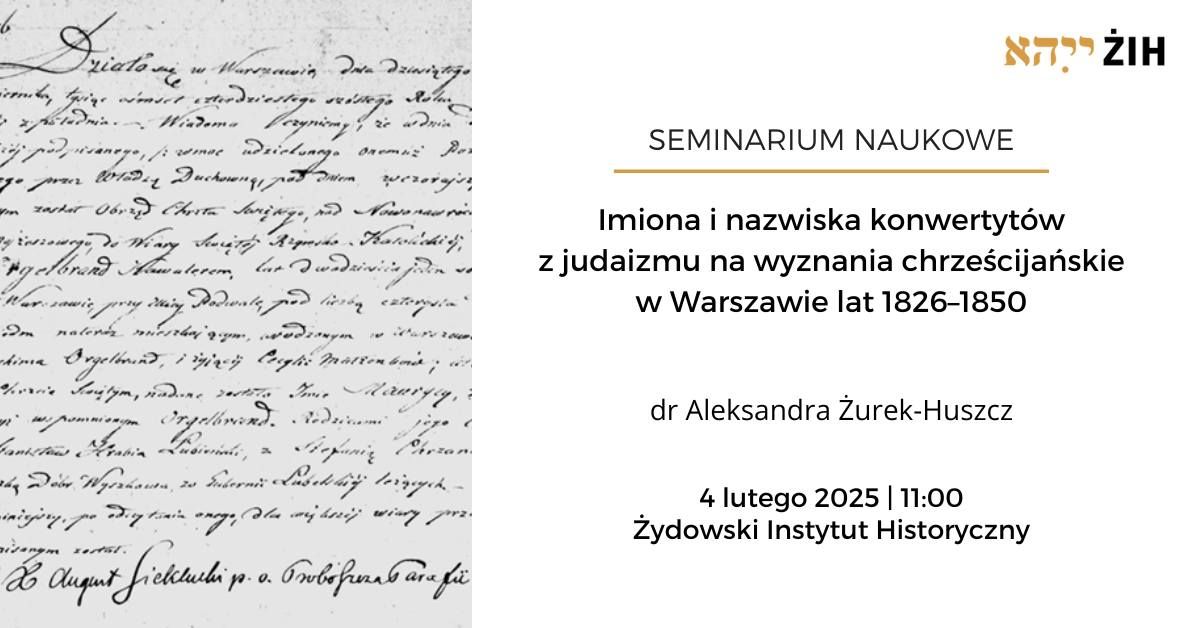 Działo się w Warszawie dnia dziesiątego
tysiąc ośmset czterdziestego szóstego Roku
z południa. — Wiadomo czynimy, że w dniu
podpisanego, z mocy udzielonego onemuż
przez Władzę Duchowną, pod dniem wczorajszy
został Obrzęd Chrztu Świętego, nad Nowonawróc
do Wiary Świętej Rzymsko-Katolickiéj,
Orgelbrand Kawalerem, lat dwadzieścia jeden
Warszawie, przy Ulicy Podwale, pod liczbą czterysta
teraz mieszkającym, urodzonym w Warszawie
Orgelbrand, i żyjącéj Cecylii Małżonków;
Chrzcie Świętym, nadane zostało Imie Maurycy,
wspomnionym Orgelbrand. Rodzicami jego
Stanisław Hrabia Łubieński, z Stefanią
Dóbr Wyszkowa, w Gubernii Lubelskiéj leżących
po odczytaniu onego, dla większéj wiary
został.
X August Sieklucki p. o. Proboszcza Parafii
ייִהאַ ŻIH
SEMINARIUM NAUKOWE
Imiona i nazwiska konwertytów
z judaizmu na wyznania chrześcijańskie
w Warszawie lat 1826–1850
dr Aleksandra Żurek-Huszcz
4 lutego 2025 | 11:00
Żydowski Instytut Historyczny